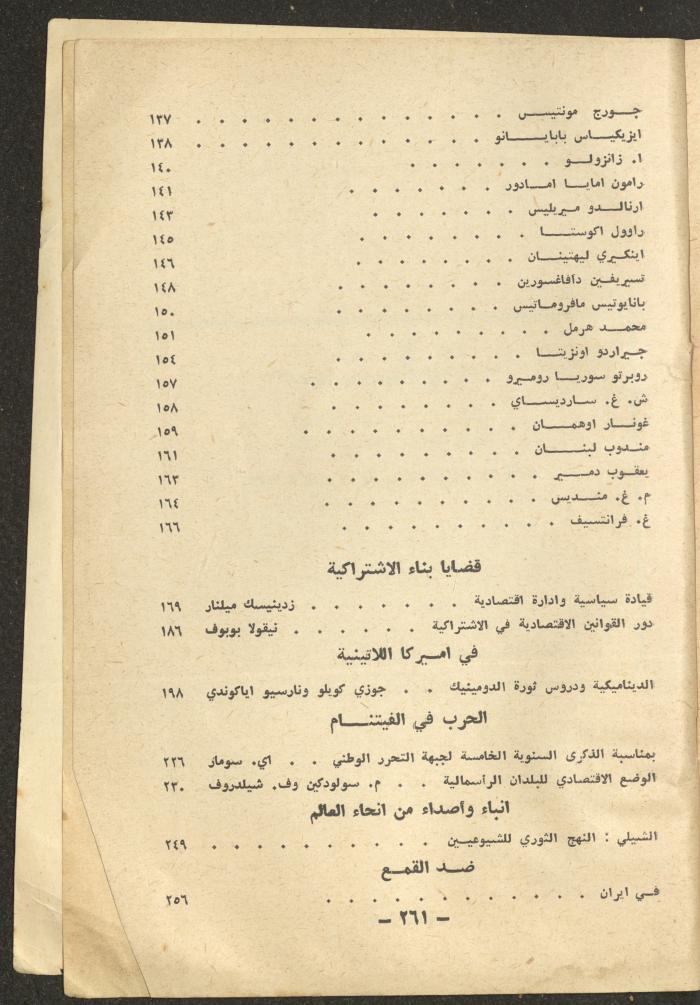 جـورج مونتيـس . . . . . . . . . . . . . . ١٣٧
ايزيكيـاس بابايـانو . . . . . . . . . . . . . ١٣٨
ا. زانزولـو . . . . . . . ١٤٠
رامون امايـا امـادور . . . . . . . ١٤١
ارنالـدو ميريليس . . . . . . . ١٤٣
راوول اكوستـا . . . . . . . . ١٤٥
اينكـيري ليهتينـان . . . . . . . . ١٤٦
تسيريفـين دافاغسورين . . . . . . . . ١٤٨
بانايوتيس مافروماتيس . . . . . . . . ١٥٠
محمـد هرمل . . . . . . . . ١٥١
جيراردو اونزيتـا . . . . . . . . ١٥٤
روبرتو سوريـا روميرو . . . . . . . . . ١٥٧
ش. غ. سـارديسـاي . . . . . . . . ١٥٨
غونـار اوهمـان . . . . . . . . . . ١٥٩
منـدوب لبنـان . . . . . . . . ١٦١
يعقـوب دمـير . . . . . . . . . ١٦٣
م. غ. منـديس . . . . . . . . . ١٦٤
غ. فرانتسيف . . . . . . . . . ١٦٦
قضايا بناء الاشتراكية
قيادة سياسية وادارة اقتصادية . . . . . . . زدينيسك ميلنار ١٦٩
دور القوانين الاقتصادية في الاشتراكية . . . . . . نيقولا بوبوف ١٨٦
في اميركا اللاتينية
الديناميكية ودروس ثورة الدومينيك . . جوزي كويلو ونارسيو اياكوندي ١٩٨
الحرب في الفيتنـام
بمناسبة الذكرى السنوية الخامسة لجبهة التحرر الوطني . . اي. سومار ٢٢٦
الوضع الاقتصادي للبلدان الرأسمالية . . م. سولودكين وف. شيلدروف ٢٣٠
انباء وأصداء من انحاء العالم
الشيلي : النهج الثوري للشيوعيـين . . . . . . . . . . ٢٤٩
ضـد القمـع
فـي ايران . . . . . . . . . . . . ٢٥٦
— ٢٦١ —